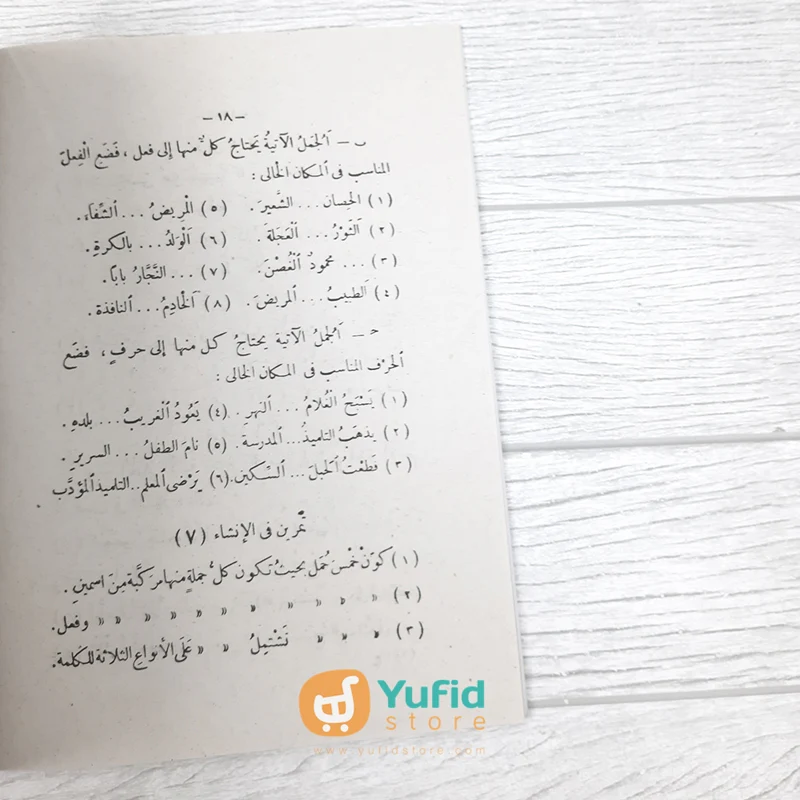 — ١٨ —
ب — اَلْجُمَلُ الآتِيَةُ يَحْتَاجُ كلٌّ منها إلى فعل ، فَضَعِ الْفِعلَ
المناسب فى المكان الْخالى :
(١) الحِصان ... الشَّعِيرَ . (٥) الْمريضُ ... الشِّفَاءَ .
(٢) الثَّوْرُ ... الْعَجَلَةَ . (٦) الْوَلَدُ ... بالكرةِ .
(٣) ... محمودٌ الْغُصْنَ . (٧) ... النَّجَّارُ بابًا .
(٤) الطبيبُ ... المريضَ . (٨) الْخَادِمُ ... النافذة .
ح — اَلْجُمَلُ الآتية يحتاجُ كل منها إلى حرفٍ ، فضَع
الْحَرْفَ المناسب فى المكان الخالى :
(١) يَسْبَحُ الْغُلامُ ... النهرِ . (٤) يَعُودُ الْغَريبُ ... بلدهِ .
(٢) يذهَبُ التلميذُ ... المدرسة . (٥) نامَ الطفلُ ... السريرِ .
(٣) قطعْتُ الحبلَ ... السِّكين . (٦) يَرْضى المعلم .. التلميذ المؤدَّب
تمرين فى الإنشاء (٧)
(١) كوّنْ خمْسَ جُمَل بحيثُ تكون كلُّ جملةٍ منها مركَّبة مِنَ اسمينِ .
(٢) » » » » » » » » » » وفعل .
(٣) » » » تَشْتَمِلُ » » عَلَى الأنواعِ الثلاثة للكَلمة .
Yufid
store
www.yufidstore.com